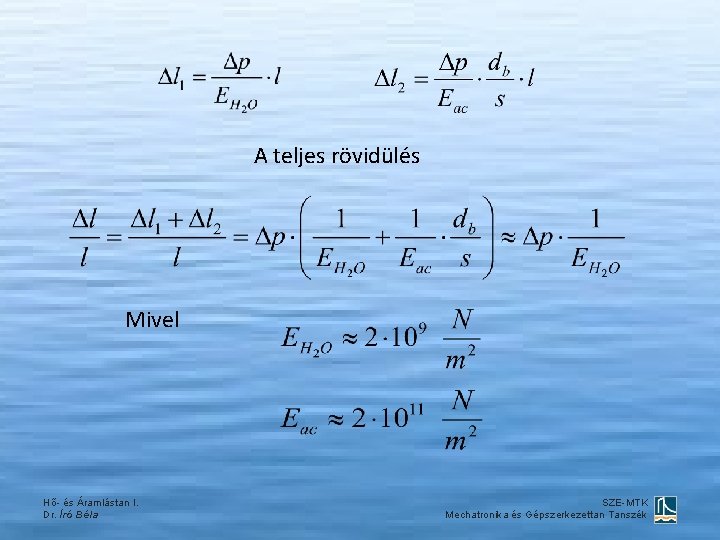 Δl₁ = Δp / E_H₂O · l    Δl₂ = Δp / E_ac · d_b / s · l
A teljes rövidülés
Δl / l = (Δl₁ + Δl₂) / l = Δp · (1 / E_H₂O + 1 / E_ac · d_b / s) ≈ Δp · 1 / E_H₂O
Mivel
E_H₂O ≈ 2 · 10⁹ N / m²
E_ac ≈ 2 · 10¹¹ N / m²
Hő- és Áramlástan I.
Dr. Író Béla
SZE-MTK
Mechatronika és Gépszerkezettan Tanszék